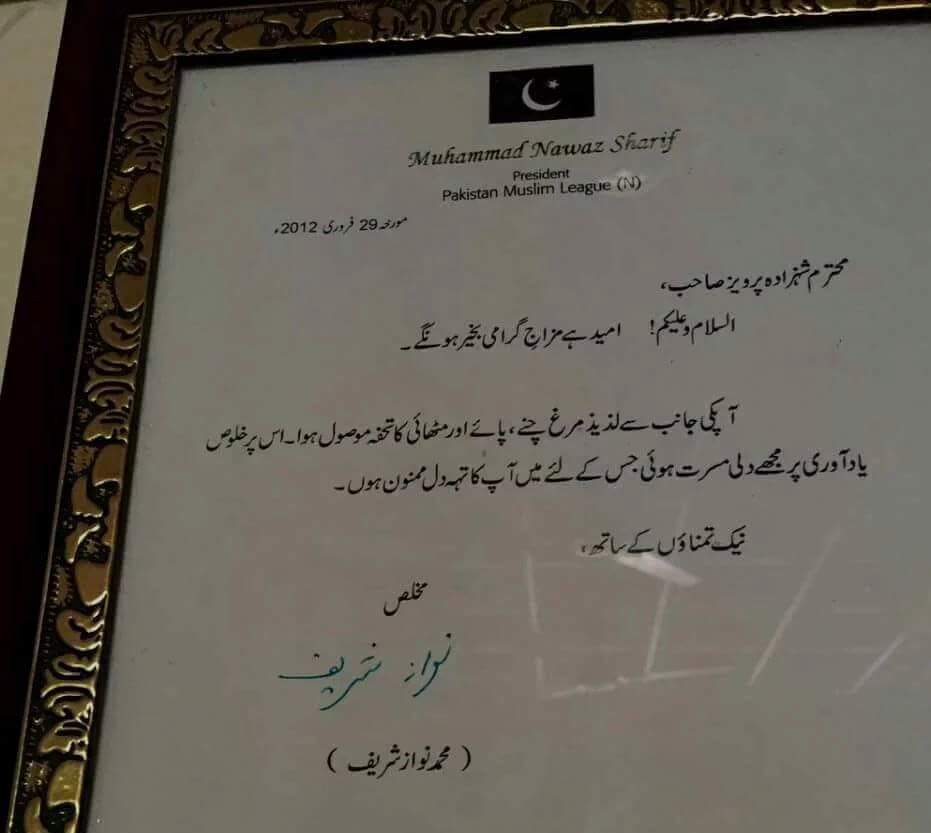 Muhammad Nawaz Sharif
President
Pakistan Muslim League (N)
مورخہ 29 فروری 2012ء
محترم شہزادہ پرویز صاحب،
السلام وعلیکم! امید ہے مزاجِ گرامی بخیر ہونگے۔
آپکی جانب سے لذیذ مرغ چنے، پائے اور مٹھائی کا تحفہ موصول ہوا۔ اس پر خلوص
یاد آوری پر مجھے دلی مسرت ہوئی جس کے لئے میں آپ کا تہہ دل ممنون ہوں۔
نیک تمناؤں کے ساتھ،
مخلص
نواز شریف
( محمد نواز شریف )